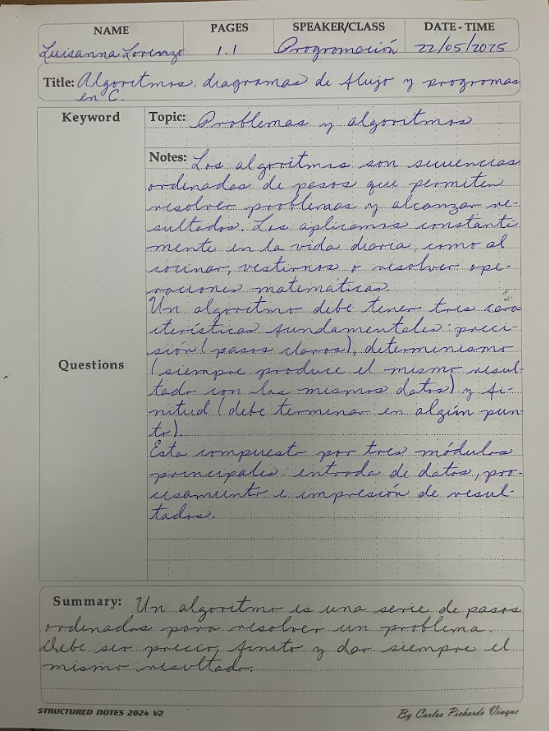 NAME PAGES SPEAKER/CLASS DATE - TIME
Luisanna Lorenzo 1.1 Programación 22/05/2025
Title: Algoritmos, diagramas de flujo y programas
en C.
Keyword
Topic: Problemas y algoritmos
Notes: Los algoritmos son secuencias
ordenadas de pasos que permiten
resolver problemas y alcanzar re-
sultados. Los aplicamos constante
mente en la vida diaria, como al
cocinar, vestirnos o resolver ope-
raciones matemáticas.
Un algoritmo debe tener tres cara
cterísticas fundamentales: preci-
sión (pasos claros), determinismo
Questions
(siempre produce el mismo resul-
tado con los mismos datos) y fi-
nitud (debe terminar en algún pun-
to).
Esta compuesto por tres módulos
principales: entrada de datos, pro-
cesamiento e impresión de resul-
tados.
Summary: Un algoritmo es una serie de pasos
ordenados para resolver un problema.
Debe ser preciso, finito y dar siempre el
mismo resultado.
STRUCTURED NOTES 2024 V2
By Carlos Pichardo Viuque